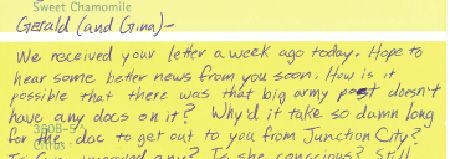 Sweet Chamomile
Gerald (and Gina)—
We received your letter a week ago today. Hope to
hear some better news from you soon. How is it
possible that there was that big army post doesn't
have any docs on it? Why'd it take so damn long
for the doc to get out to you from Junction City?
3608-5
Citrus
Is she conscious? Still